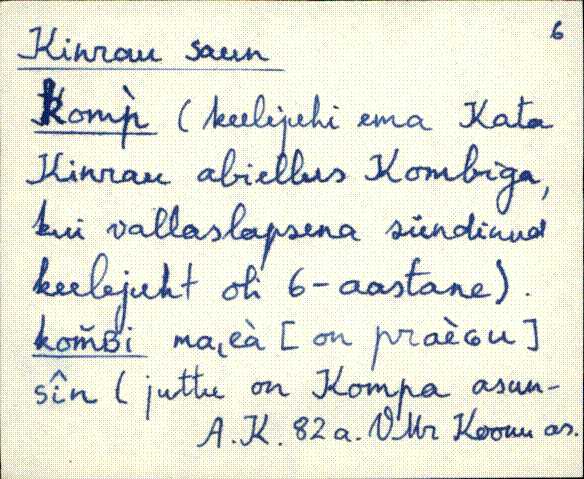 6
Kinrau saun
Komp̀ (keelejuhi ema Kata
Kinrau abiellus Kombiga,
kui vallaslapsena sündinud
keelejuht oli 6-aastane).
kom̆ʙi ma,eà [on praèɢu]
sîn (juttu on Kompa asun-
A.K. 82 a. VMr Koonu as.